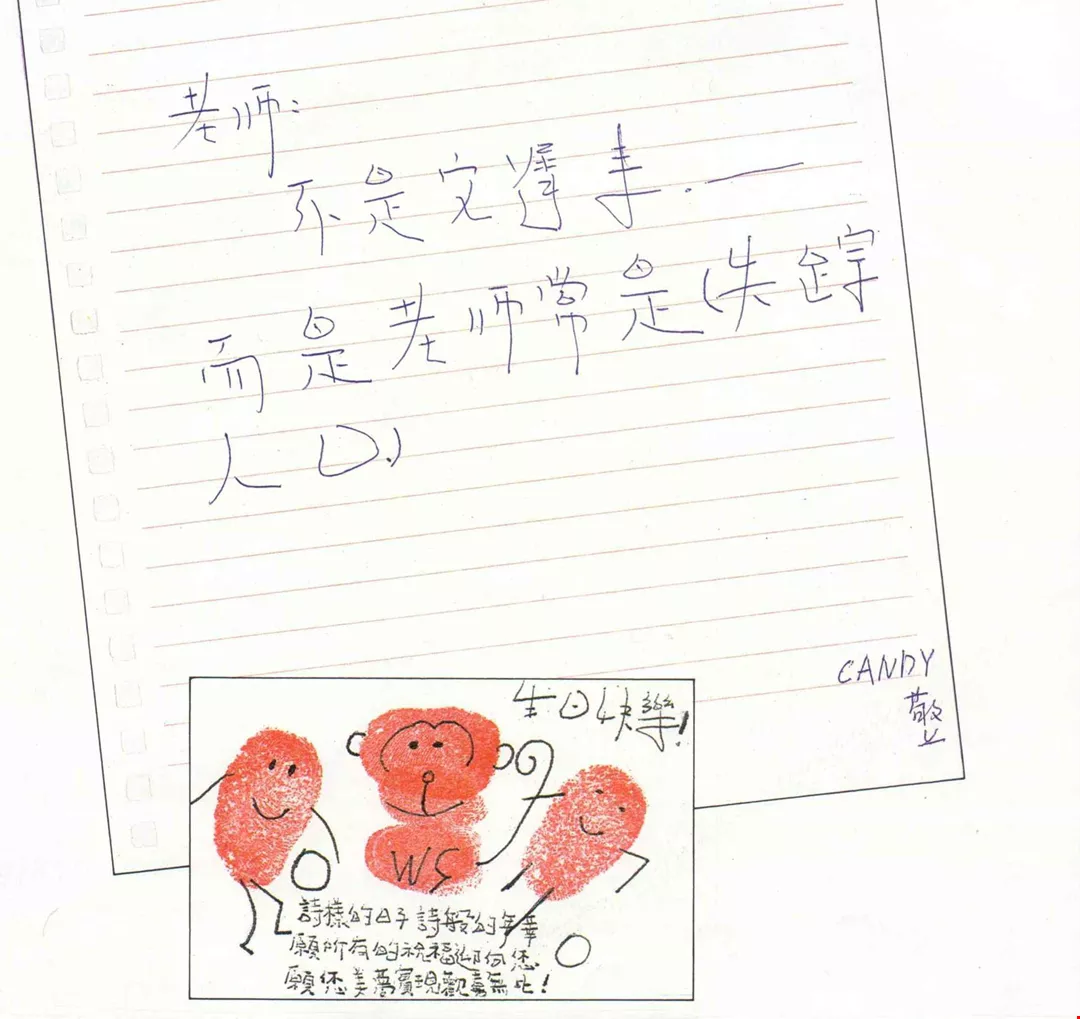 老师:
不是遲
而是老师常是(失踪
人口.)
CANDY
敬上
生日快樂!
WS
詩樣的日子詩般的年華
願所有的祝福迎向您
願您美夢實現歡喜無比!